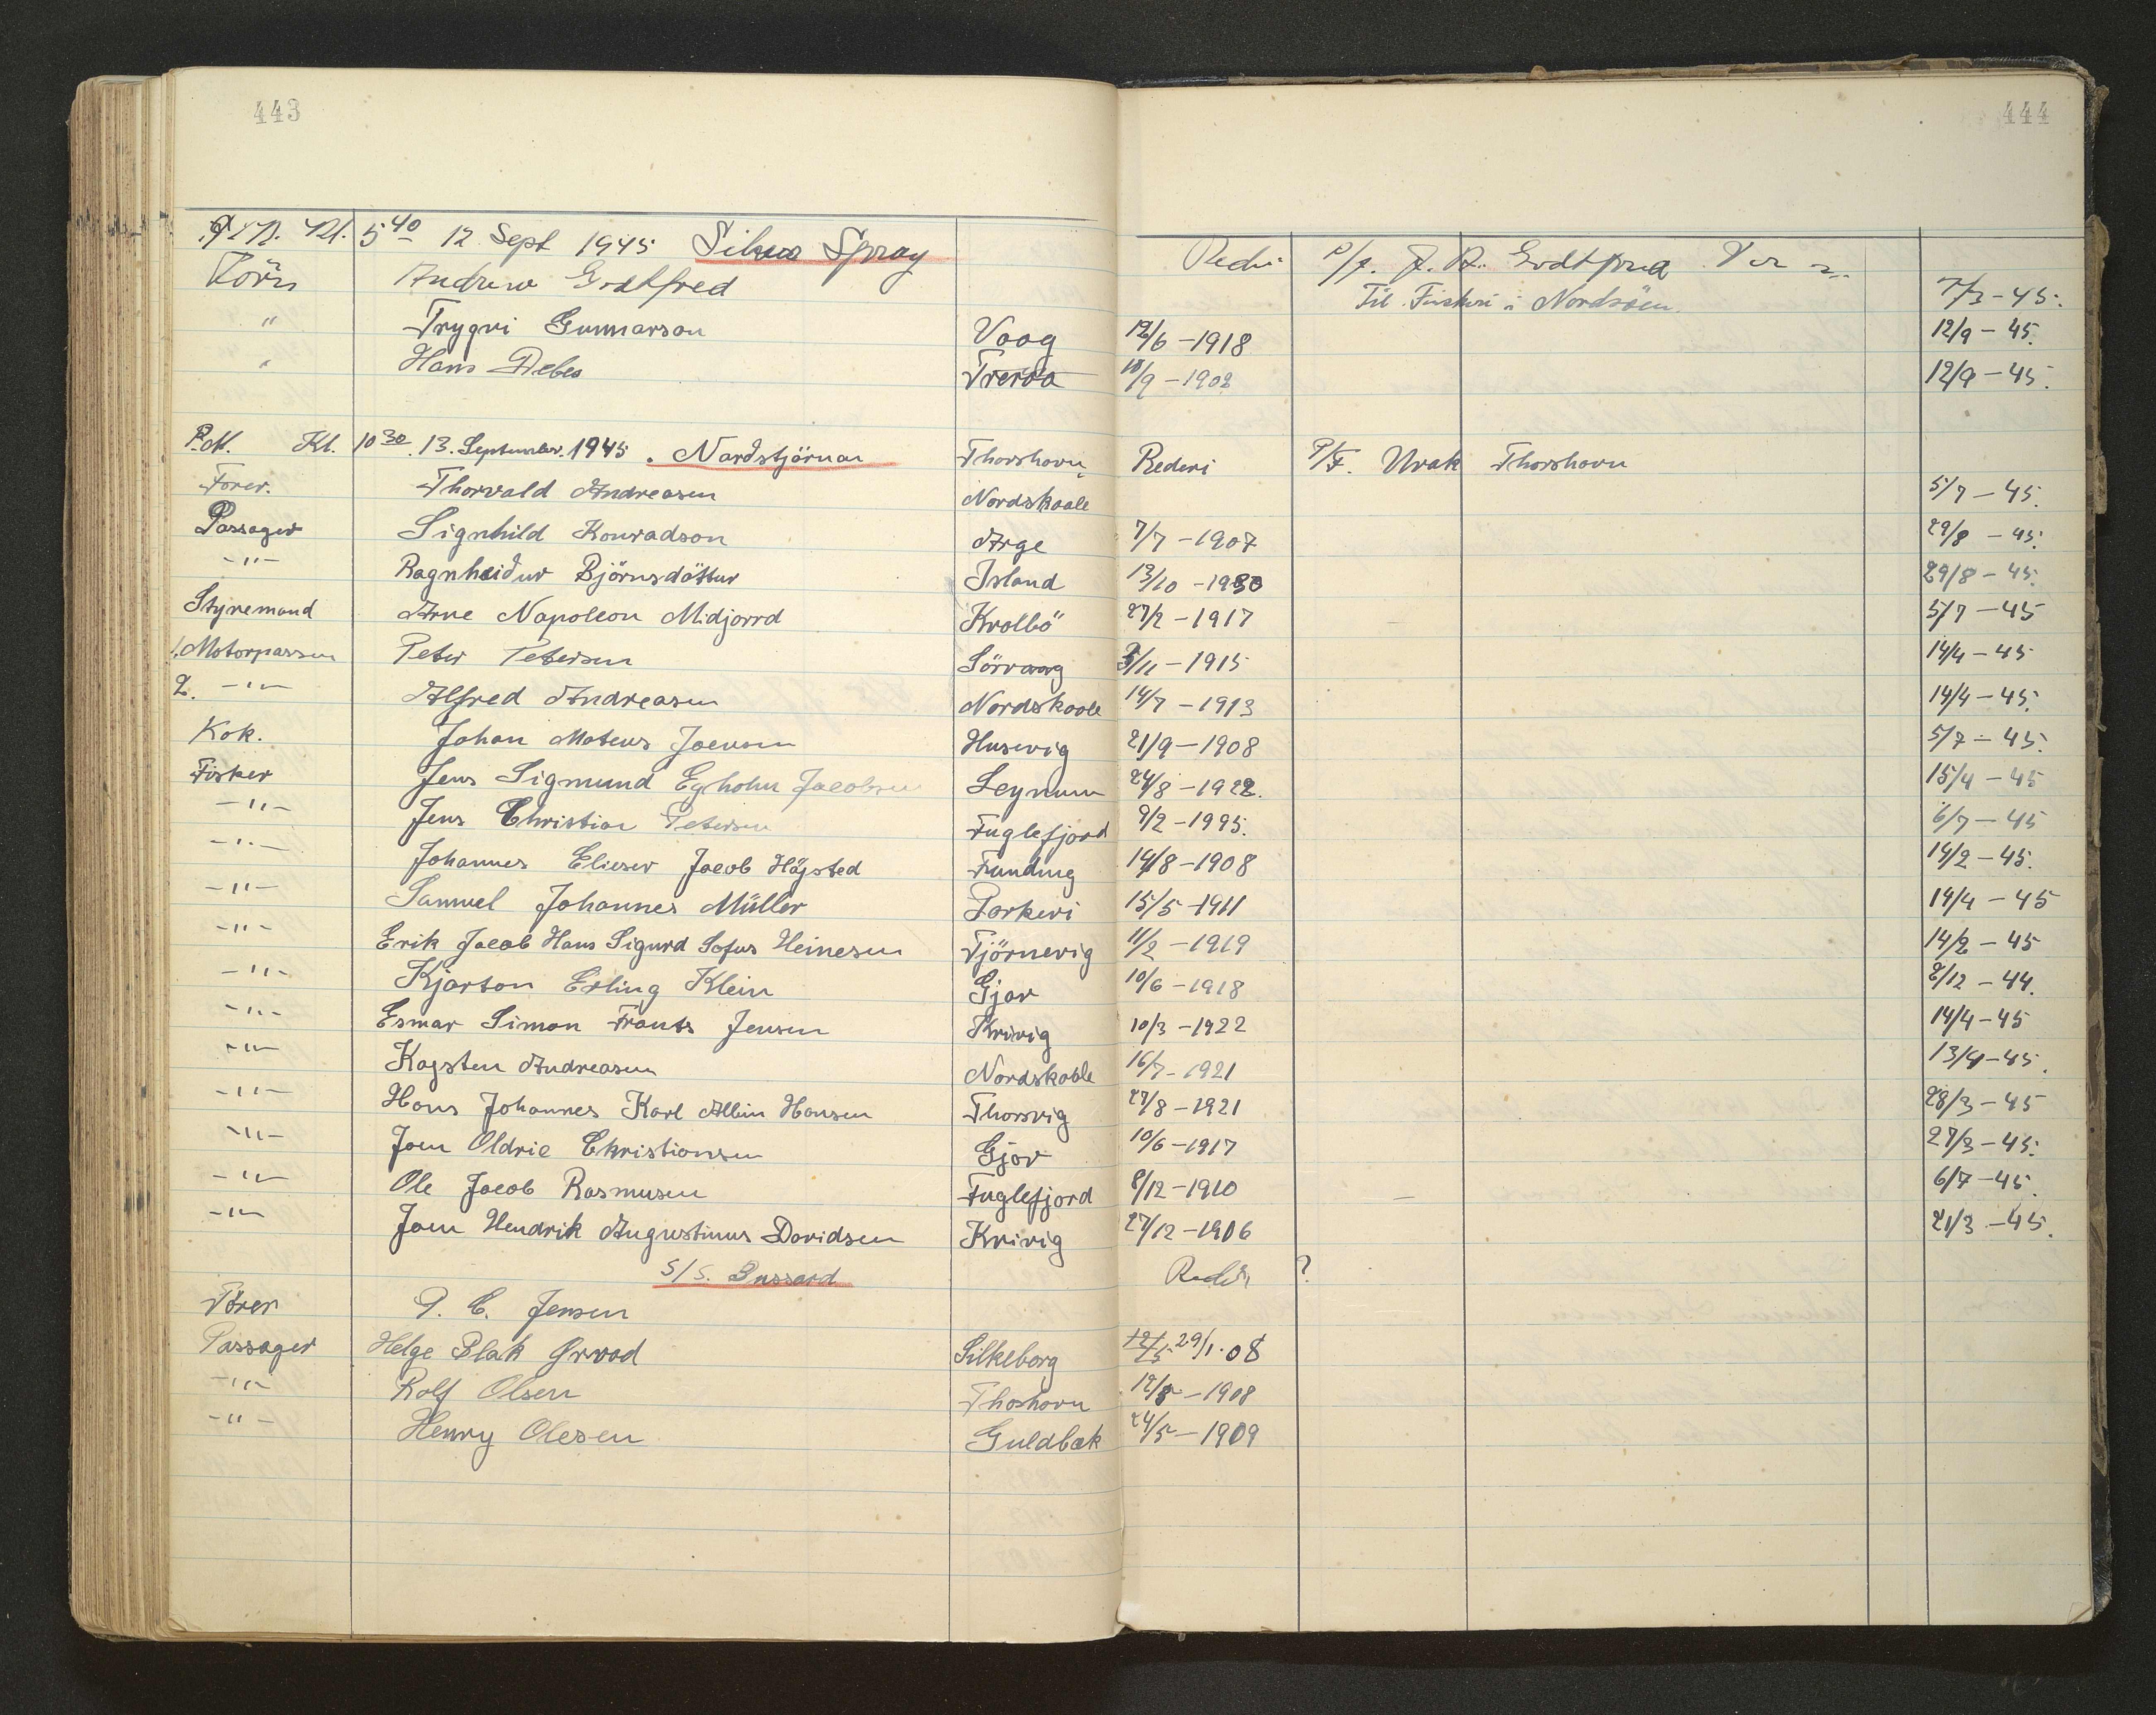 443
444
Kl. 5 40 12 Sept 1945 Silver Spray Rederi P/f. J. D. Godtfred
Andrew Godtfred Til Fiskeri i Nordsöen 7/3 - 45.
" Trygvi Gunnarson Vaag 12/6 - 1918 12/9 - 45.
" Hans Debes 18/9 - 1902 12/9 - 45.
P.M. Kl. 10 30 13. September 1945. Nordstjörnan Thorshavn Rederi P/F. Urak Thorshavn
Förer. Thorvald Andreasen Nordskaale 5/7 - 45.
Passager Signhild Konradson Arge 7/7 - 1907 29/8 - 45.
-"- Ragnheidur Björnsdöttur Island 13/10 - 1930 29/8 - 45.
Styremand Arne Napoleon Midjorrd Kvolbö 27/2 - 1917 5/7 - 45
1. Motorpassen Peter Petersen Sörvaag 5/11 - 1915 14/4 - 45
2. -"- Alfred Andreasen Nordskaale 14/7 - 1913 14/4 - 45.
Kok. Johan Mateus Joensen Husevig 21/9 - 1908 5/7 - 45.
Fisker Jens Sigmund Egholm Jacobsen Leynum 24/8 - 1922. 15/4 - 45
-"- Jens Christian Petersen Fuglefjord 9/2 - 1995. 6/7 - 45
-"- Johannes Elieser Jacob Højsted Funding 14/8 - 1908 14/2 - 45.
-"- Samuel Johannes Müller Porkeri 15/5 - 1911 14/4 - 45
-"- Erik Jacob Hans Sigurd Sofus Heinesen Tjörnevig 11/2 - 1919 14/2 - 45
-"- Kjartan Erling Klein Gjov 10/6 - 1918 2/12 - 44.
-"- Esmar Simon Frants Jensen Kvivig 10/3 - 1922 14/4 - 45
-"- Karsten Andreasen Nordskaale 16/7 - 1921 13/4 - 45.
-"- Hans Johannes Karl Albin Hansen Thorsvig 27/8 - 1921 28/3 - 45
-"- Joen Oldrie Christiansen Gjov 10/6 - 1917 27/3 - 45.
-"- Ole Jacob Rasmusen Fuglefjord 8/12 - 1910 6/7 - 45.
-"- Joen Hendrik Augustinus Davidsen Kvivig 27/12 - 1906 21/3 - 45.
S/S. Bussard Rederi ?
Förer P. C. Jensen
Passager Helge Blak Grvod Silkeborg 29/1. 08
-"- Rolf Olsen Thoshavn 12/8 - 1908
-"- Henry Olesen Guldbæk 24/5 - 1909